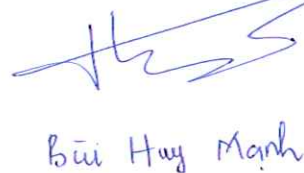 Bùi Huy Mạnh